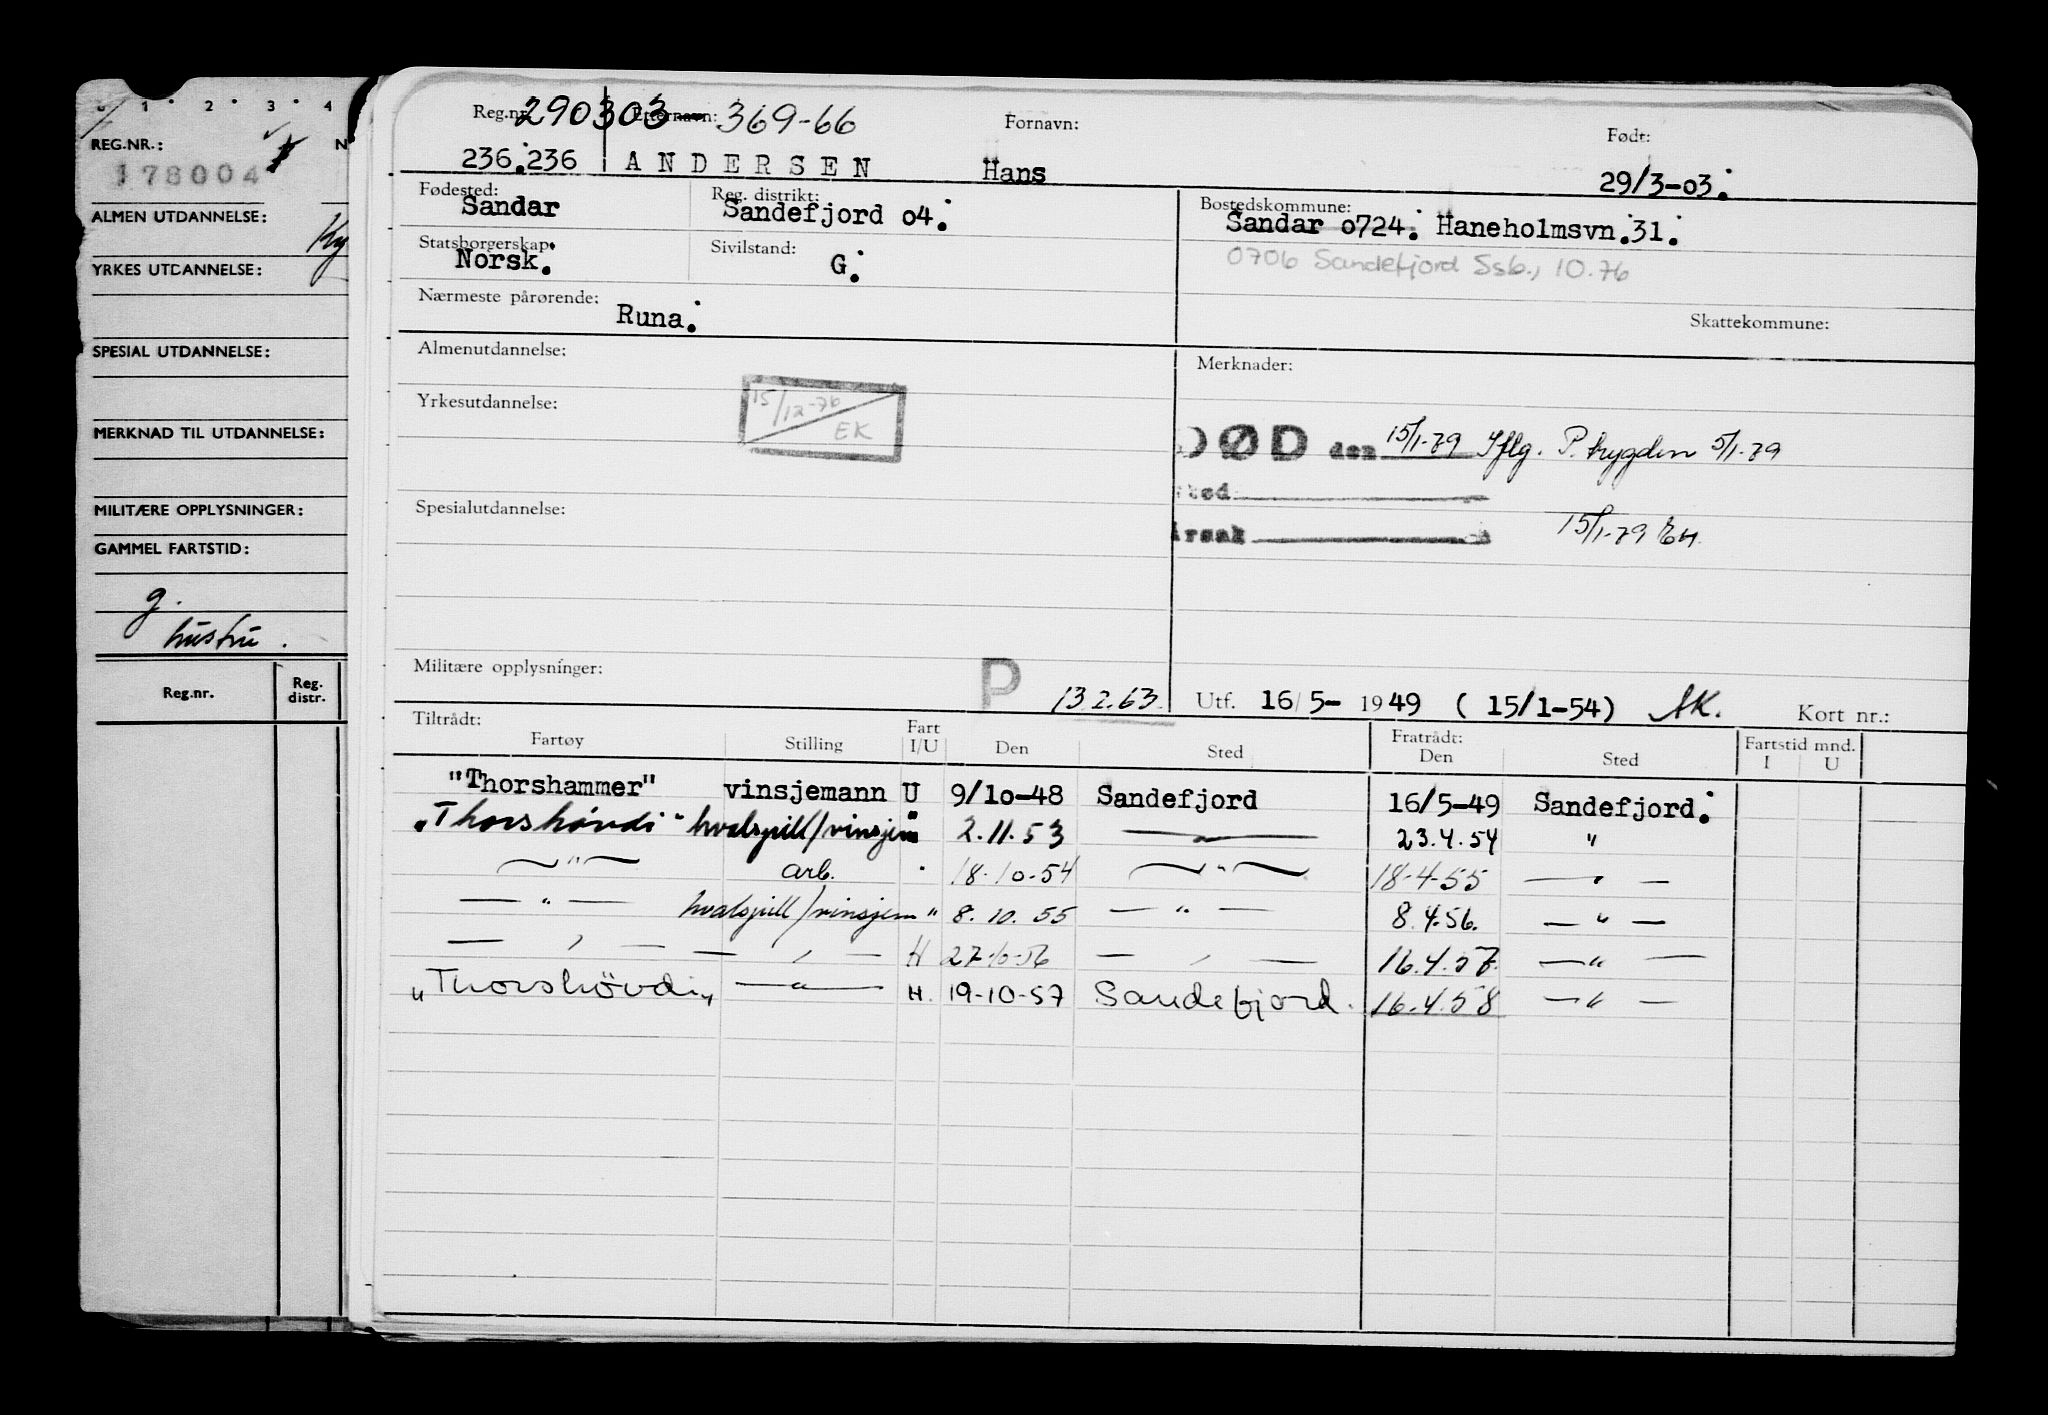 1 2 3 4
REG.NR.: N
178004
ALMEN UTDANNELSE:
YRKES UTDANNELSE:
SPESIAL UTDANNELSE:
MERKNAD TIL UTDANNELSE:
MILITÆRE OPPLYSNINGER:
GAMMEL FARTSTID:
g.
hustru.
Reg.nr. Reg. distr.
Reg.nr. 290303 Etternavn: 369-66 Fornavn: Født:
236.236 ANDERSEN Hans 29/3-03.
Fødested: Sandar Reg. distrikt: Sandefjord o4. Bostedskommune: Sandar o724. Haneholmsvn.31.
Statsborgerskap: Norsk. Sivilstand: G. 0706 Sandefjord Ssb., 10.76
Nærmeste pårørende: Runa. Skattekommune:
Almenutdannelse: Merknader:
Yrkesutdannelse: 15/12-76 EK
DØD den 15/1-79 Iflg. P. trygden 5/1-79
Sted
Årsak 15/1-79 EH.
Spesialutdannelse:
Militære opplysninger: P 13.2.63. Utf. 16/5- 1949 (15/1-54) AK. Kort nr.:
Tiltrådt: Fratrådt: Fartstid mnd.
Fartøy Stilling Fart I/U Den Sted Den Sted I U
"Thorshammer" vinsjemann U 9/1o-48 Sandefjord 16/5-49 Sandefjord.
"Thorshövdi" hvalspill/vinsjem " 2.11.53 — " — 23.4.54 "
— " — arb. " 18-10-54 — " — 18-4-55 — " —
— " — hvalspill/vinsjem " 8.10.55 — " — 8.4.56. — " —
— " — — " — H 27-10-56 — " — 16.4.57. — " —
"Thorshövdi" — " — H. 19-10-57 Sandefjord. 16.4.58 — " —